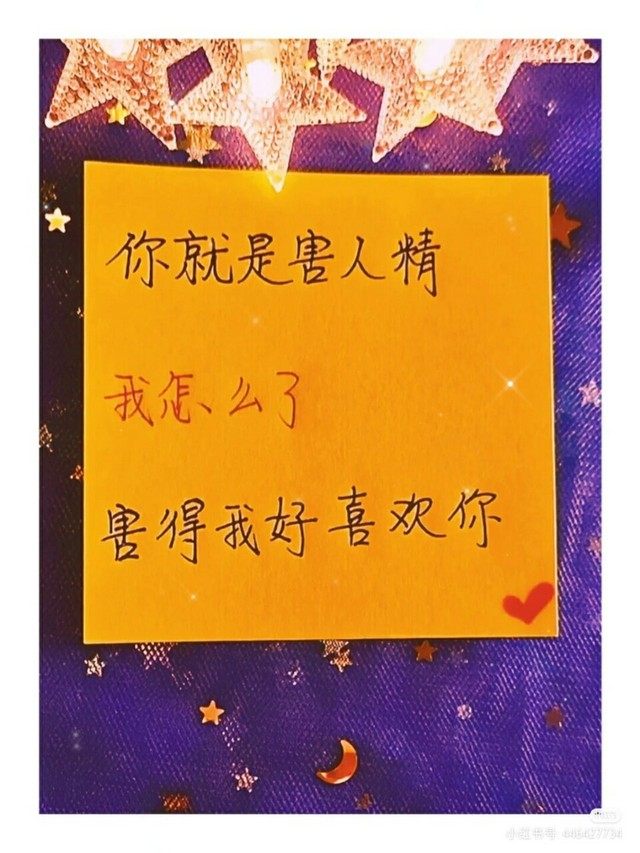 你就是害人精
我怎么了
害得我好喜欢你
小红书号: 446427734